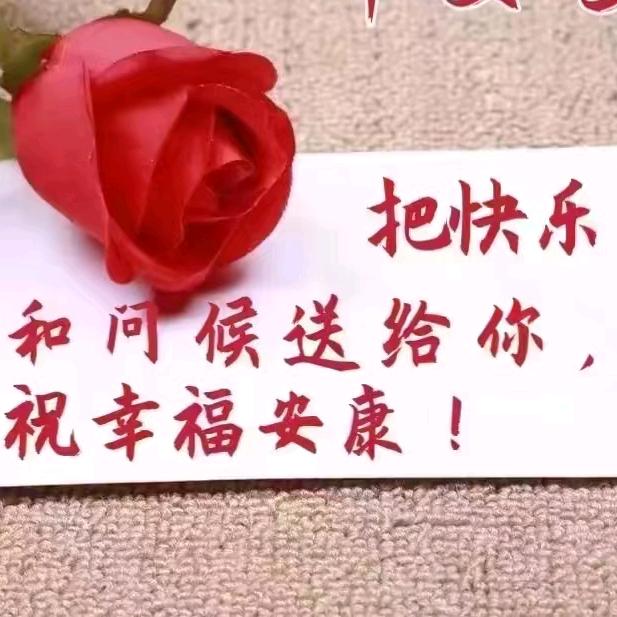 把快乐
和问候送给你，
祝幸福安康！